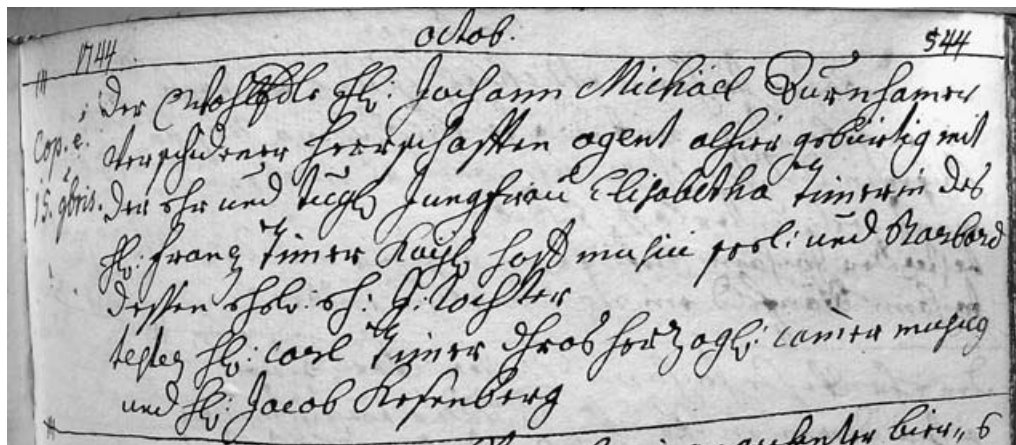 1744 octob. 544
Der Wohl Edle H: Johann Michäel Durnhamer
Cop. e. Verschidener herrschafften agent alhier gebürtig mit
15. 9bris. der Ehr und tugl Jungfrau Elisabetha Timerin des
H: Frantz Timer Kayl hoff musici seel: und Barbara
dessen Ehel: G: tochter
testes H: Carl Timer Gros hertzogl: camer musicg
und H: Jacob
bier